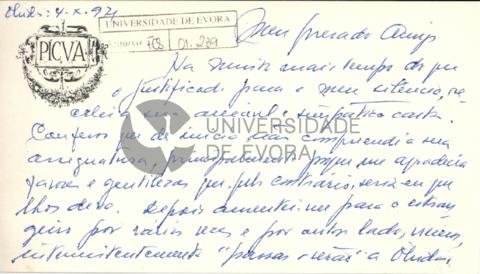 Olhão: 4-X-92
UNIVERSIDADE DE ÉVORA
ARQUIVO FCS 01.239
PICVA
Meu prezado Amigo
Há muito mais tempo do que
o justificado para o meu silêncio, re-
cebi a sua amável e simpática carta.
Confesso que de início não compreendi a sua
amargura, principalmente porque me agradecia
favores e gentilezas que pelo contrário, seria eu que
lhos devo. Depois ausentei-me para o estran-
geiro por várias vezes e por outro lado,
intermitentemente "passas o verão" a Olhão,
UNIVERSIDADE
DE ÉVORA